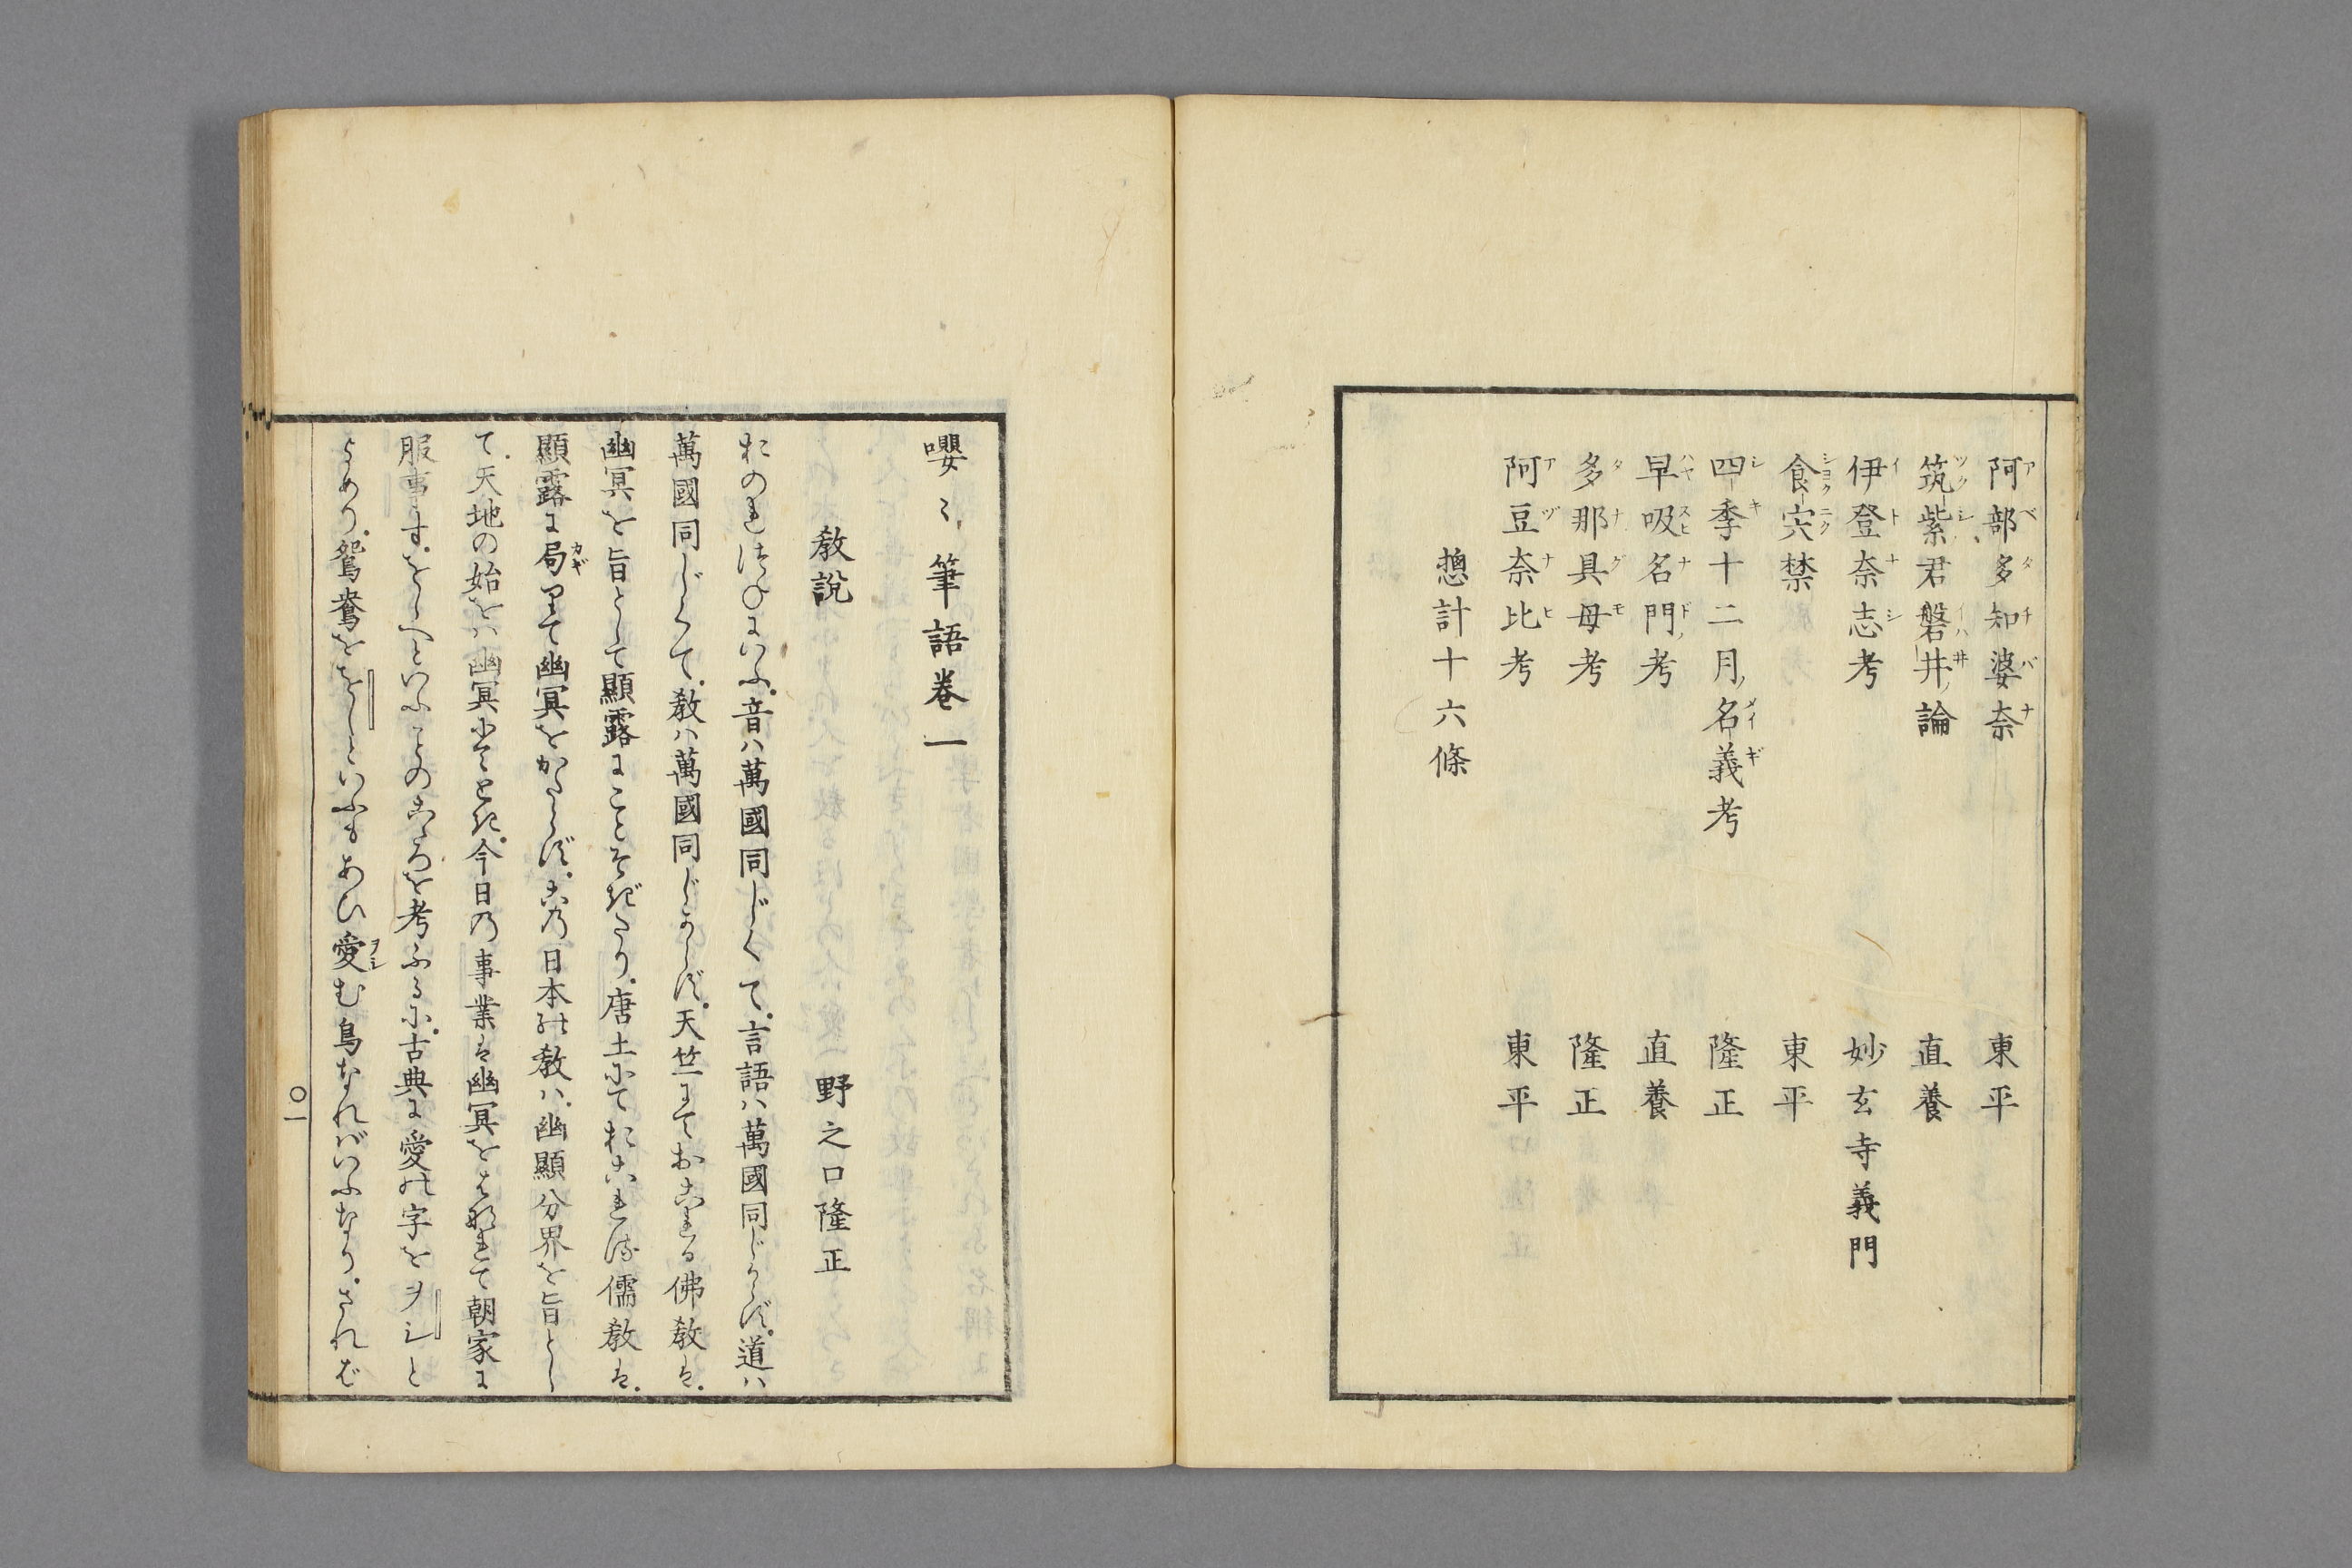 阿部多知婆奈 東平
筑紫君磐井論 直養
伊登奈志考 妙玄寺義門
食宍禁 東平
四季十二月名義考 隆正
早吸名門考 直養
多那具母考 隆正
阿豆奈比考 東平
摠計十六條
嚶〻筆語卷一
敎說 野之口隆正
おのれつねにいふ。音ハ萬國同じくて。言語ハ萬國同じからず。道ハ
萬國同じくて。敎ハ萬國同じからず。天竺にておこれる佛敎は。
幽冥を旨として顯露にことそぎたり。唐土にておこれる儒敎は。
顯露に局りて幽冥をかたらず。この日本の敎ハ。幽顯分界を旨とし
て。天地の始をハ幽冥にとき。今日の事業は幽冥をはなれて朝家に
服事す。をしへといふことのこゝろを考ふるに。古典に愛の字をヲシと
よめり。鴛鴦ををしといふもあひ愛む鳥なれバいふなり。されば
〇一